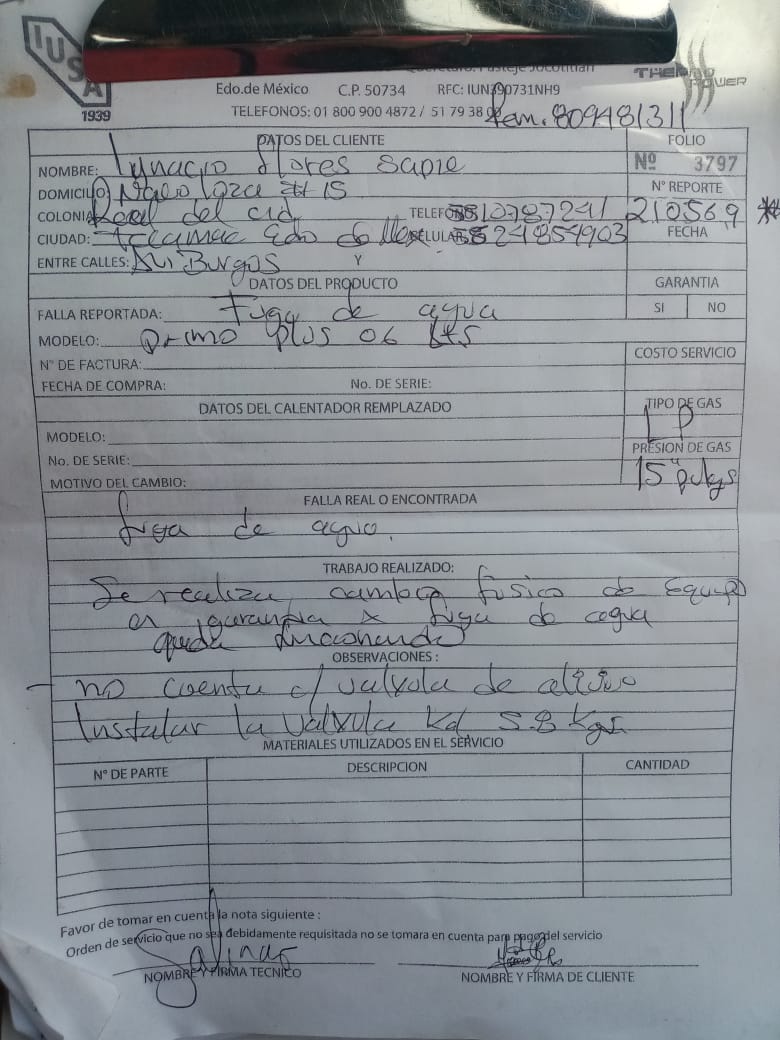 IUSA
1939
THERMO POWER
Edo.de México C.P. 50734 RFC: IUN390731NH9
TELEFONOS: 01 800 900 4872 / 51 79 38
Rem. 809481311
DATOS DEL CLIENTE
FOLIO
Nº 3797
NOMBRE: Ignacio Flores
DOMICILIO # 15
Nº REPORTE
210569
COLONIA Real del cid
TELEFO
CIUDAD: Tecamac Edo de Mex
FECHA
ENTRE CALLES: Burgos Y
DATOS DEL PRODUCTO
GARANTIA
SI NO
FALLA REPORTADA: Fuga de agua
MODELO: plus 06 Lts
Nº DE FACTURA:
COSTO SERVICIO
FECHA DE COMPRA: No. DE SERIE:
DATOS DEL CALENTADOR REMPLAZADO
TIPO DE GAS
LP
MODELO:
PRESION DE GAS
No. DE SERIE:
15"
MOTIVO DEL CAMBIO:
FALLA REAL O ENCONTRADA
fuga de agua.
TRABAJO REALIZADO:
Se realiza cambio fisico de Equipo
en garantia x fuga de agua
queda funcionando
OBSERVACIONES :
no cuenta c/ valvula de alivio
Instalar la valvula
MATERIALES UTILIZADOS EN EL SERVICIO
Nº DE PARTE DESCRIPCION CANTIDAD
Favor de tomar en cuenta la nota siguiente :
Orden de servicio que no sea debidamente requisitada no se tomara en cuenta para pago del servicio
Salinas
NOMBRE Y FIRMA TECNICO NOMBRE Y FIRMA DE CLIENTE